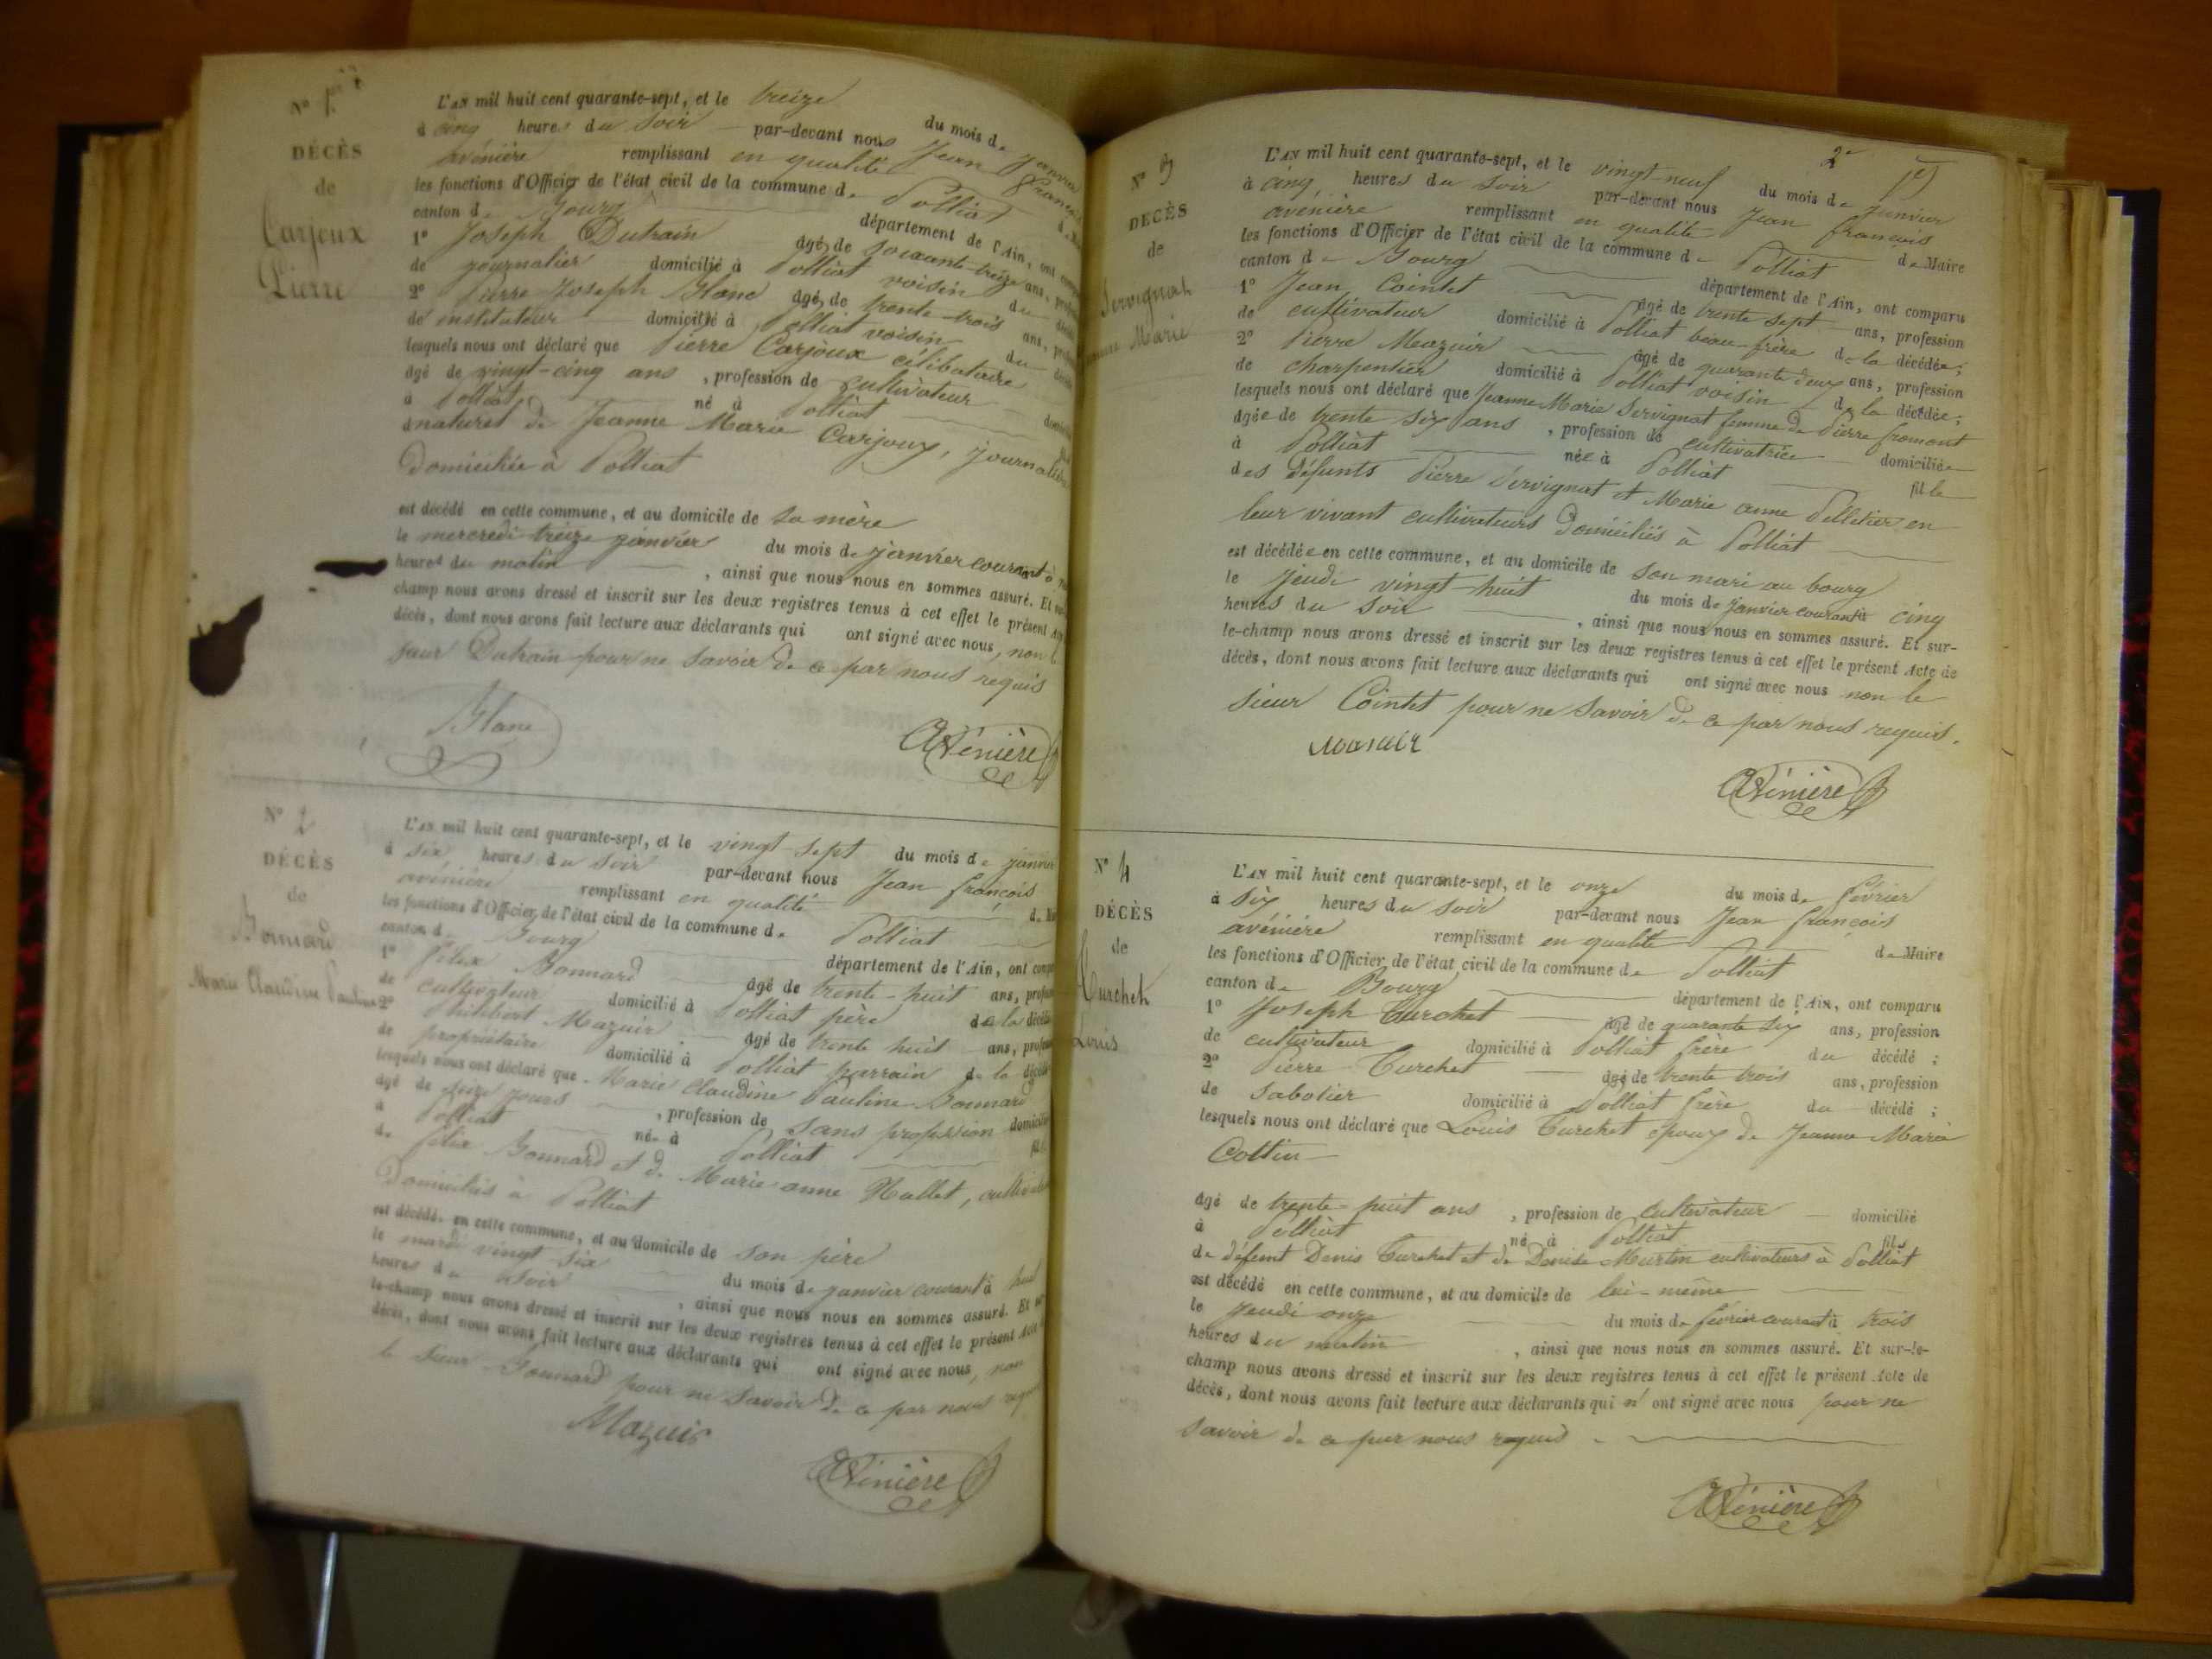 N° 1er
DÉCÈS
de
Carjoux
Pierre
L'AN mil huit cent quarante-sept, et le treize du mois de janvier
à cinq heures du soir par-devant nous Jean François
avénière remplissant en qualité de
les fonctions d'Officier de l'état civil de la commune de Polliat
canton de Bourg département de l'Ain, ont
1° Joseph Dutrain âgé de soixante-treize ans,
de journalier domicilié à Polliat voisin du
2° Pierre Joseph Blanc âgé de trente-trois ans,
de instituteur domicilié à Polliat voisin du
lesquels nous ont déclaré que Pierre Carjoux célibataire
âgé de vingt-cinq ans, profession de cultivateur
à Polliat né à Polliat
naturel de Jeanne Marie Carjoux, journalière
domiciliée à Polliat
est décédé en cette commune, et au domicile de sa mère
le mercredi treize janvier du mois de janvier courant à
heures du matin, ainsi que nous nous en sommes assuré. Et
champ nous avons dressé et inscrit sur les deux registres tenus à cet effet le présent
décès, dont nous avons fait lecture aux déclarants qui ont signé avec nous, non le
sieur Dutrain pour ne savoir de ce par nous requis
Blanc
Avénière
N° 2
DÉCÈS
de
Bonnard
Marie Claudine Pauline
L'AN mil huit cent quarante-sept, et le vingt-sept du mois de janvier
à six heures du soir par-devant nous Jean françois
avénière remplissant en qualité de
les fonctions d'Officier de l'état civil de la commune de Polliat
canton de Bourg département de l'Ain, ont
1° félix Bonnard âgé de trente-huit ans,
de cultivateur domicilié à Polliat père de la
2° Philibert Mazuir âgé de trente huit ans,
de propriétaire domicilié à Polliat parrain de la
lesquels nous ont déclaré que Marie Claudine Pauline Bonnard
âgé de jours, profession de sans profession
à Polliat née à Polliat
de félix Bonnard et de Marie anne
domiciliés à Polliat
est décédée en cette commune, et au domicile de son père
le mardi vingt-six du mois de janvier courant à huit
heures du soir, ainsi que nous nous en sommes assuré. Et
le-champ nous avons dressé et inscrit sur les deux registres tenus à cet effet le présent Acte
décès, dont nous avons fait lecture aux déclarants qui ont signé avec nous, non
le sieur Bonnard pour ne savoir de ce par nous requis
Mazuir
Avénière
2e
N° 3
DÉCÈS
de
Servignat
Marie
L'AN mil huit cent quarante-sept, et le vingt-neuf du mois de janvier
à cinq heures du soir par-devant nous Jean françois
avénière remplissant en qualité de Maire
les fonctions d'Officier de l'état civil de la commune de Polliat
canton de Bourg département de l'Ain, ont comparu
1° Jean Cointet âgé de trente sept ans, profession
de cultivateur domicilié à Polliat beau-frère de la décédée;
2° Pierre Mazuir âgé de quarante deux ans, profession
de charpentier domicilié à Polliat voisin de la décédée;
lesquels nous ont déclaré que Jeanne Marie Servignat femme de Pierre fromont
âgée de trente six ans, profession de cultivatrice domiciliée
à Polliat née à Polliat fille
des défunts Pierre Servignat et Marie anne Pelletier en
leur vivant cultivateurs domiciliés à Polliat
est décédée en cette commune, et au domicile de son mari au bourg
le jeudi vingt-huit du mois de janvier courant à cinq
heures du soir, ainsi que nous nous en sommes assuré. Et sur-
le-champ nous avons dressé et inscrit sur les deux registres tenus à cet effet le présent Acte de
décès, dont nous avons fait lecture aux déclarants qui ont signé avec nous non le
sieur Cointet pour ne savoir de ce par nous requis.
Avénière
N° 4
DÉCÈS
de
Curchet
Louis
L'AN mil huit cent quarante-sept, et le onze du mois de février
à six heures du soir par-devant nous Jean françois
avénière remplissant en qualité de Maire
les fonctions d'Officier de l'état civil de la commune de Polliat
canton de Bourg département de l'Ain, ont comparu
1° Joseph Curchet âgé de quarante six ans, profession
de cultivateur domicilié à Polliat frère du décédé;
2° Pierre Curchet âgé de trente trois ans, profession
de sabotier domicilié à Polliat frère du décédé;
lesquels nous ont déclaré que Louis Curchet époux de Jeanne Marie
Cottin
âgé de trente-huit ans, profession de cultivateur domicilié
à Polliat né à Polliat fils
de défunt Denis Curchet et de Denise Martin cultivateurs à Polliat
est décédé en cette commune, et au domicile de lui-même
le jeudi onze du mois de février courant à trois
heures du matin, ainsi que nous nous en sommes assuré. Et sur-le-
champ nous avons dressé et inscrit sur les deux registres tenus à cet effet le présent Acte de
décès, dont nous avons fait lecture aux déclarants qui n' ont signé avec nous pour ne
savoir de ce par nous requis
Avénière